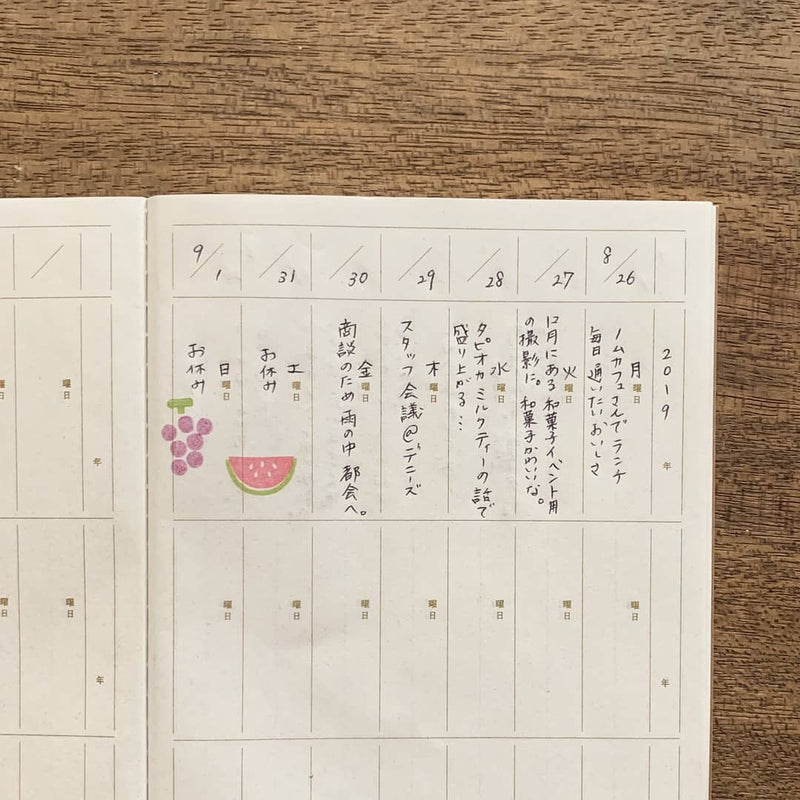 2019
年
8/26
月曜日
ノムカフェさんで ランチ
毎日 通いたいおいしさ
/27
火曜日
12月にある 和菓子イベント用
の撮影に。和菓子かわいいな。
/28
水曜日
タピオカミルクティーの話で
盛り上がる…
/29
木曜日
スタッフ会議@デニーズ
/30
金曜日
商談のため 雨の中 都会へ。
/31
土曜日
お休み
9/1
日曜日
お休み
年
曜日
曜日
曜日
曜日
曜日
曜日
曜日
/
年
曜日
年
曜日
曜日